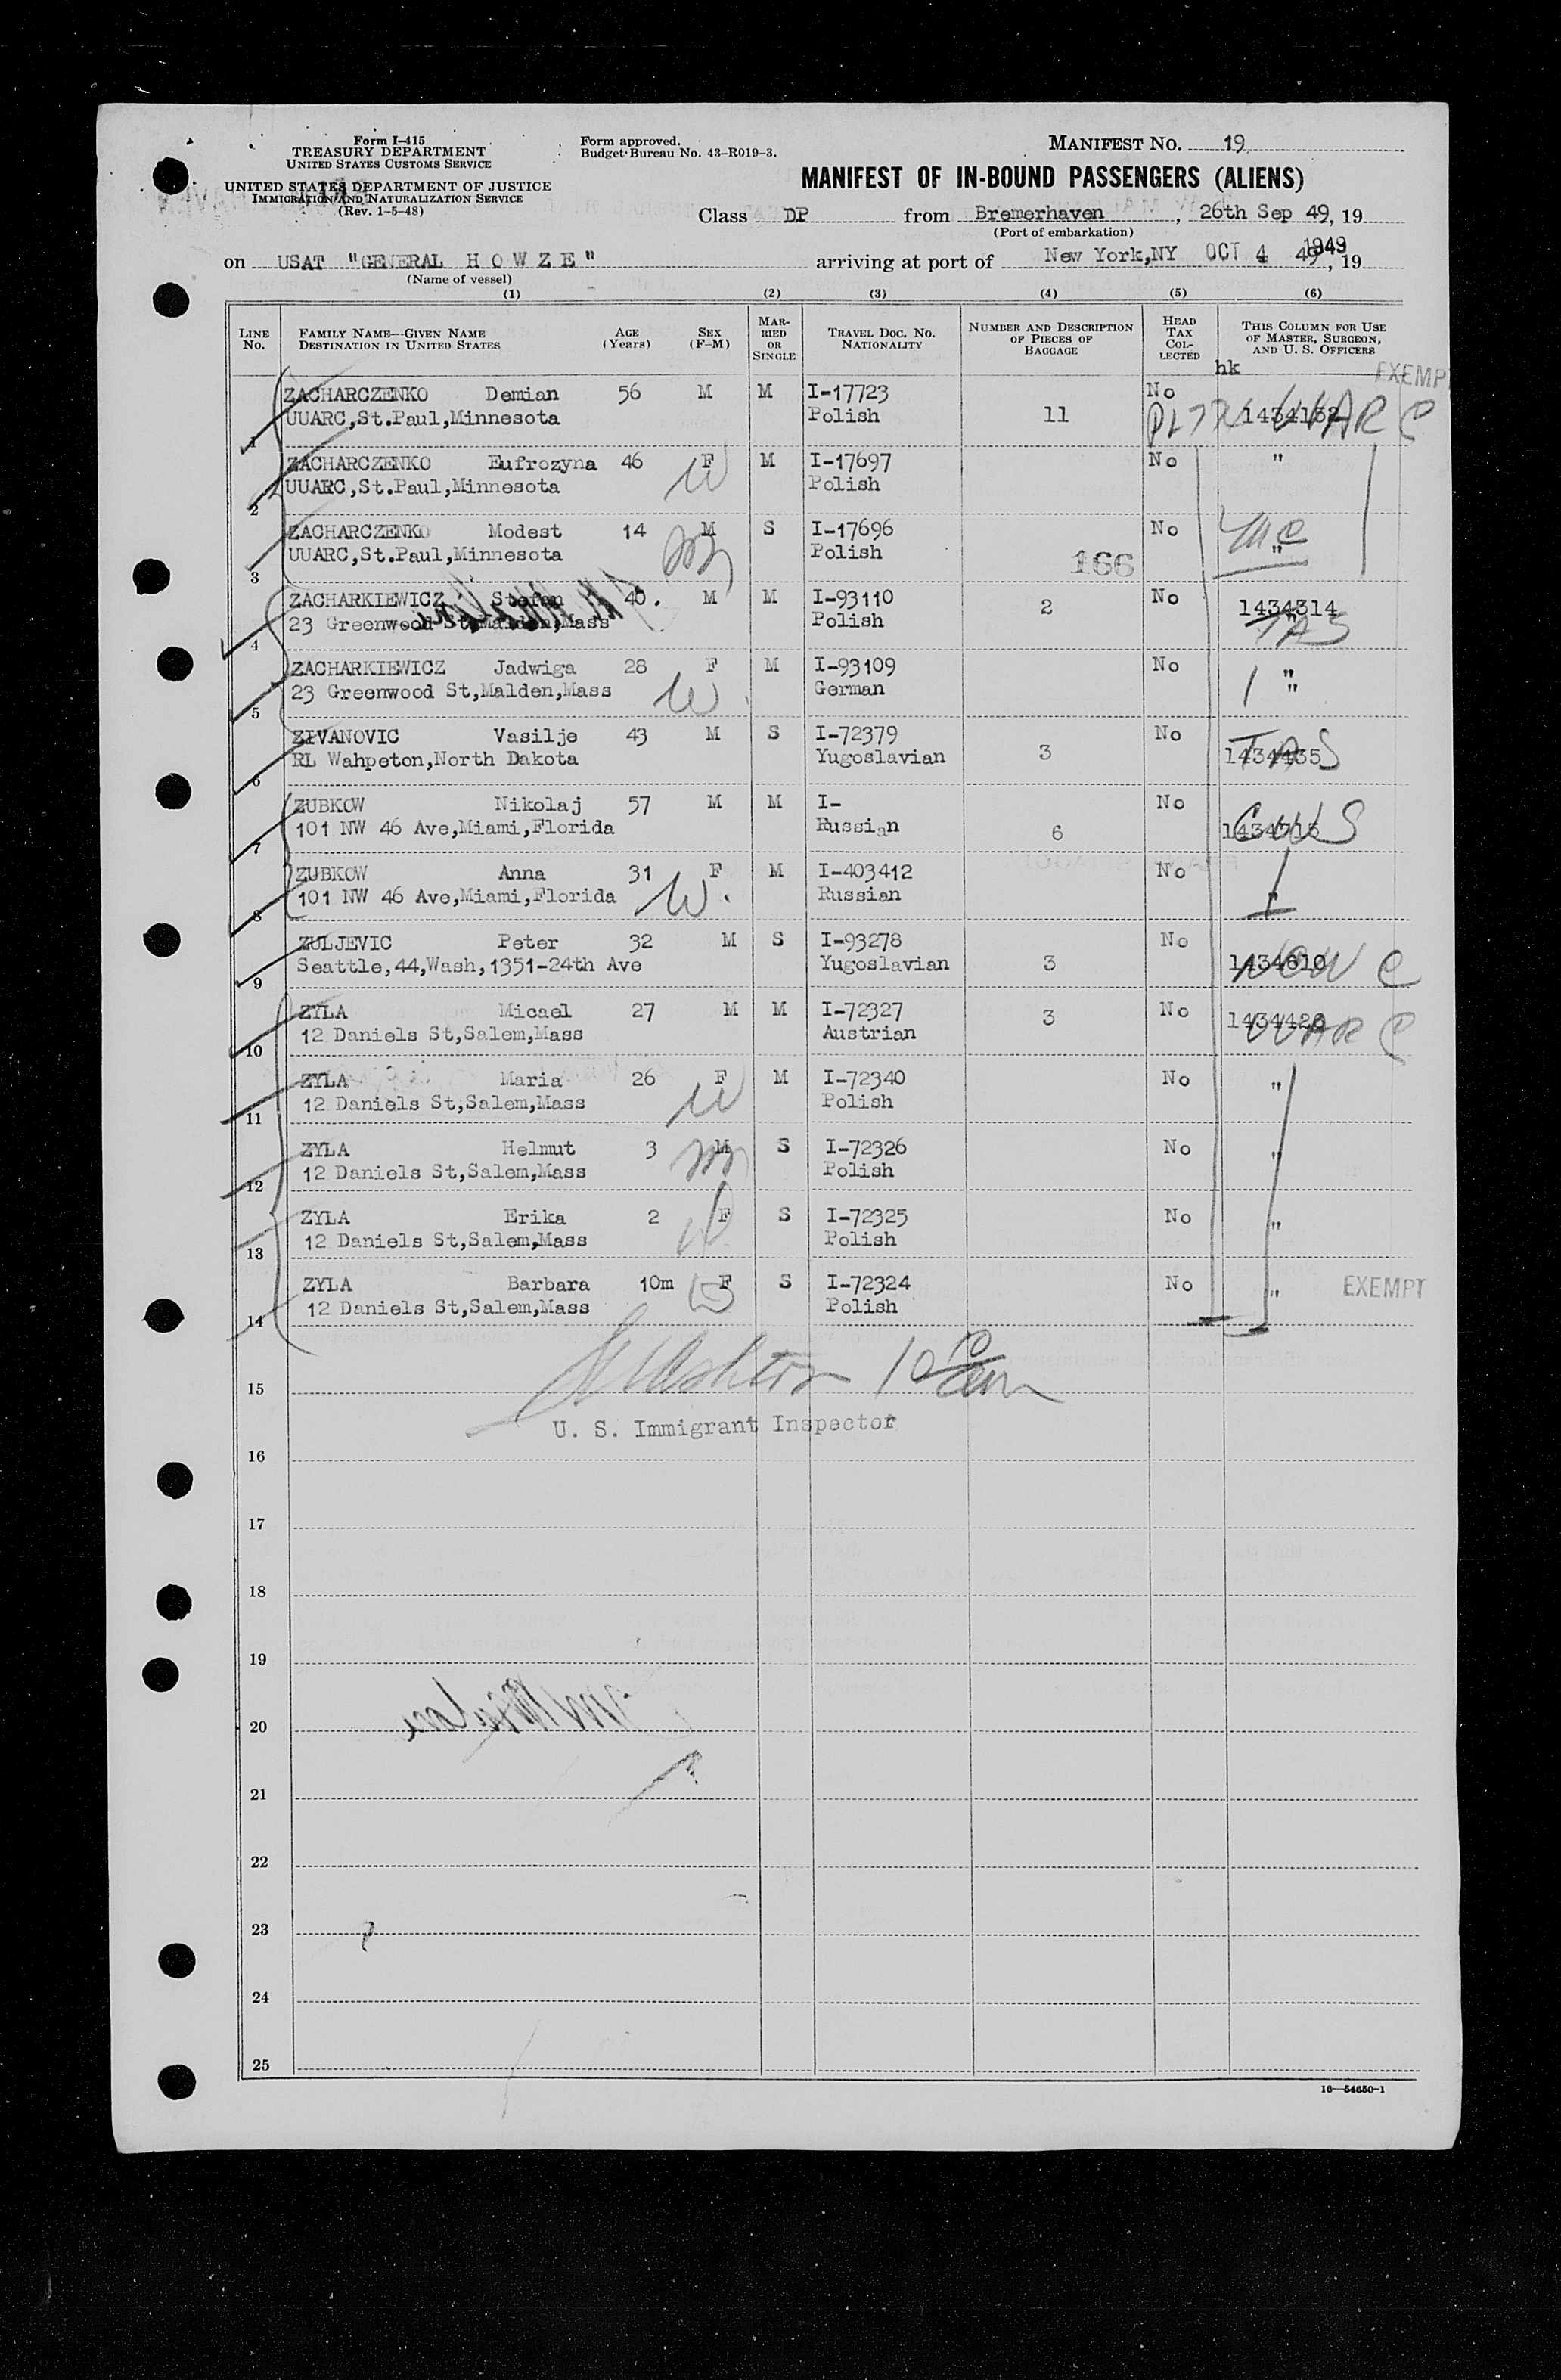 Form I-415
TREASURY DEPARTMENT
UNITED STATES CUSTOMS SERVICE
UNITED STATES DEPARTMENT OF JUSTICE
IMMIGRATION AND NATURALIZATION SERVICE
(Rev. 1-5-48)
Form approved.
Budget Bureau No. 43-R019-3.
MANIFEST NO. 19
MANIFEST OF IN-BOUND PASSENGERS (ALIENS)
Class DP from Bremerhaven, 26th Sep 49, 19
(Port of embarkation)
on USAT "GENERAL HOWZE" arriving at port of New York,NY OCT 4 1949 49, 19
(Name of vessel)
(1) (2) (3) (4) (5) (6)
LINE NO. FAMILY NAME—GIVEN NAME DESTINATION IN UNITED STATES AGE (YEARS) SEX (F-M) MARRIED OR SINGLE TRAVEL DOC. NO. NATIONALITY NUMBER AND DESCRIPTION OF PIECES OF BAGGAGE HEAD TAX COLLECTED THIS COLUMN FOR USE OF MASTER, SURGEON, AND U. S. OFFICERS
hk EXEMP
ZACHARCZENKO Demian 56 M M I-17723 No
1 UUARC,St.Paul,Minnesota Polish 11 UUARC
ZACHARCZENKO Eufrozyna 46 F M I-17697 No "
2 UUARC,St.Paul,Minnesota W Polish
ZACHARCZENKO Modest 14 M S I-17696 No
3 UUARC,St.Paul,Minnesota m Polish 166 "
ZACHARKIEWICZ Stefan 40. M M I-93110 2 No 1434314
4 23 Greenwood St,Malden,Mass Polish
ZACHARKIEWICZ Jadwiga 28 F M I-93109 No "
5 23 Greenwood St,Malden,Mass W German "
ZIVANOVIC Vasilje 43 M S I-72379 No
6 RL Wahpeton,North Dakota Yugoslavian 3 1434435
ZUBKOW Nikolaj 57 M M I- No
7 101 NW 46 Ave,Miami,Florida Russian 6 CWS
ZUBKOW Anna 31 F M I-403412 No
8 101 NW 46 Ave,Miami,Florida W. Russian "
ZULJEVIC Peter 32 M S I-93278 No
9 Seattle,44,Wash,1351-24th Ave Yugoslavian 3 1434610
ZYLA Micael 27 M M I-72327 3 No
10 12 Daniels St,Salem,Mass Austrian UUARC
ZYLA Maria 26 F M I-72340 No "
11 12 Daniels St,Salem,Mass W Polish
ZYLA Helmut 3 M S I-72326 No "
12 12 Daniels St,Salem,Mass m Polish
ZYLA Erika 2 F S I-72325 No "
13 12 Daniels St,Salem,Mass Polish
ZYLA Barbara 10m F S I-72324 No " EXEMPT
14 12 Daniels St,Salem,Mass Polish
15
U. S. Immigrant Inspector
16
17
18
19
20
21
22
23
24
25
16—54650-1